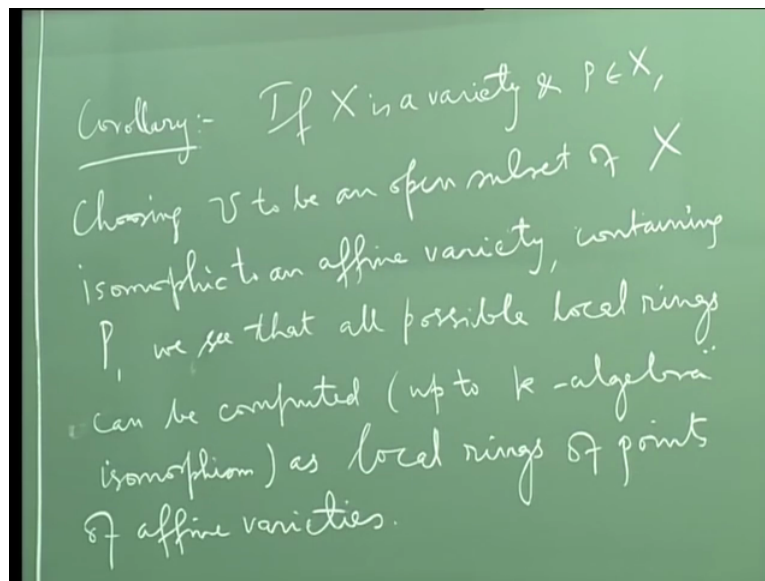 Corollary:- If X is a variety & P ∈ X,
Choosing U to be an open subset of X
isomorphic to an affine variety, containing
P, we see that all possible local rings
can be computed (up to k-algebra
isomorphism) as local rings of points
of affine varieties.